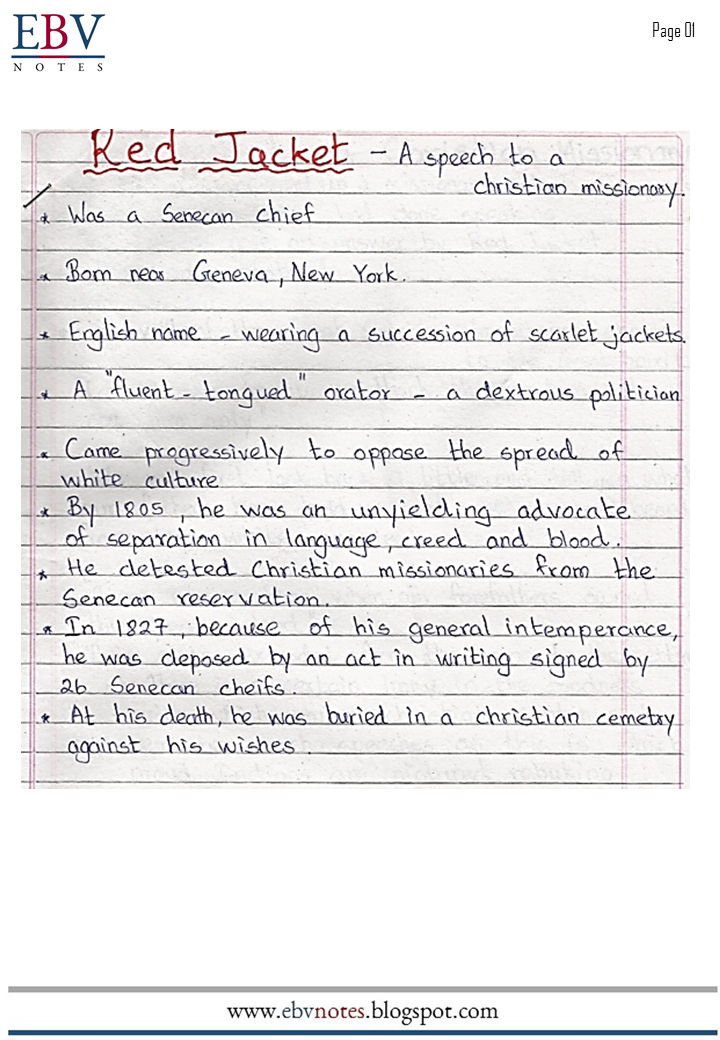 EBV
NOTES
Page 01
Red Jacket - A speech to a
christian missionary.
* Was a Senecan chief
* Born near Geneva, New York.
* English name - wearing a succession of scarlet jackets.
* A "fluent - tongued" orator - a dextrous politician
* Came progressively to oppose the spread of
white culture
* By 1805, he was an unyielding advocate
of separation in language, creed and blood.
* He detested Christian missionaries from the
Senecan reservation.
* In 1827, because of his general intemperance,
he was deposed by an act in writing signed by
26 Senecan cheifs.
* At his death, he was buried in a christian cemetry
against his wishes.
www.ebvnotes.blogspot.com